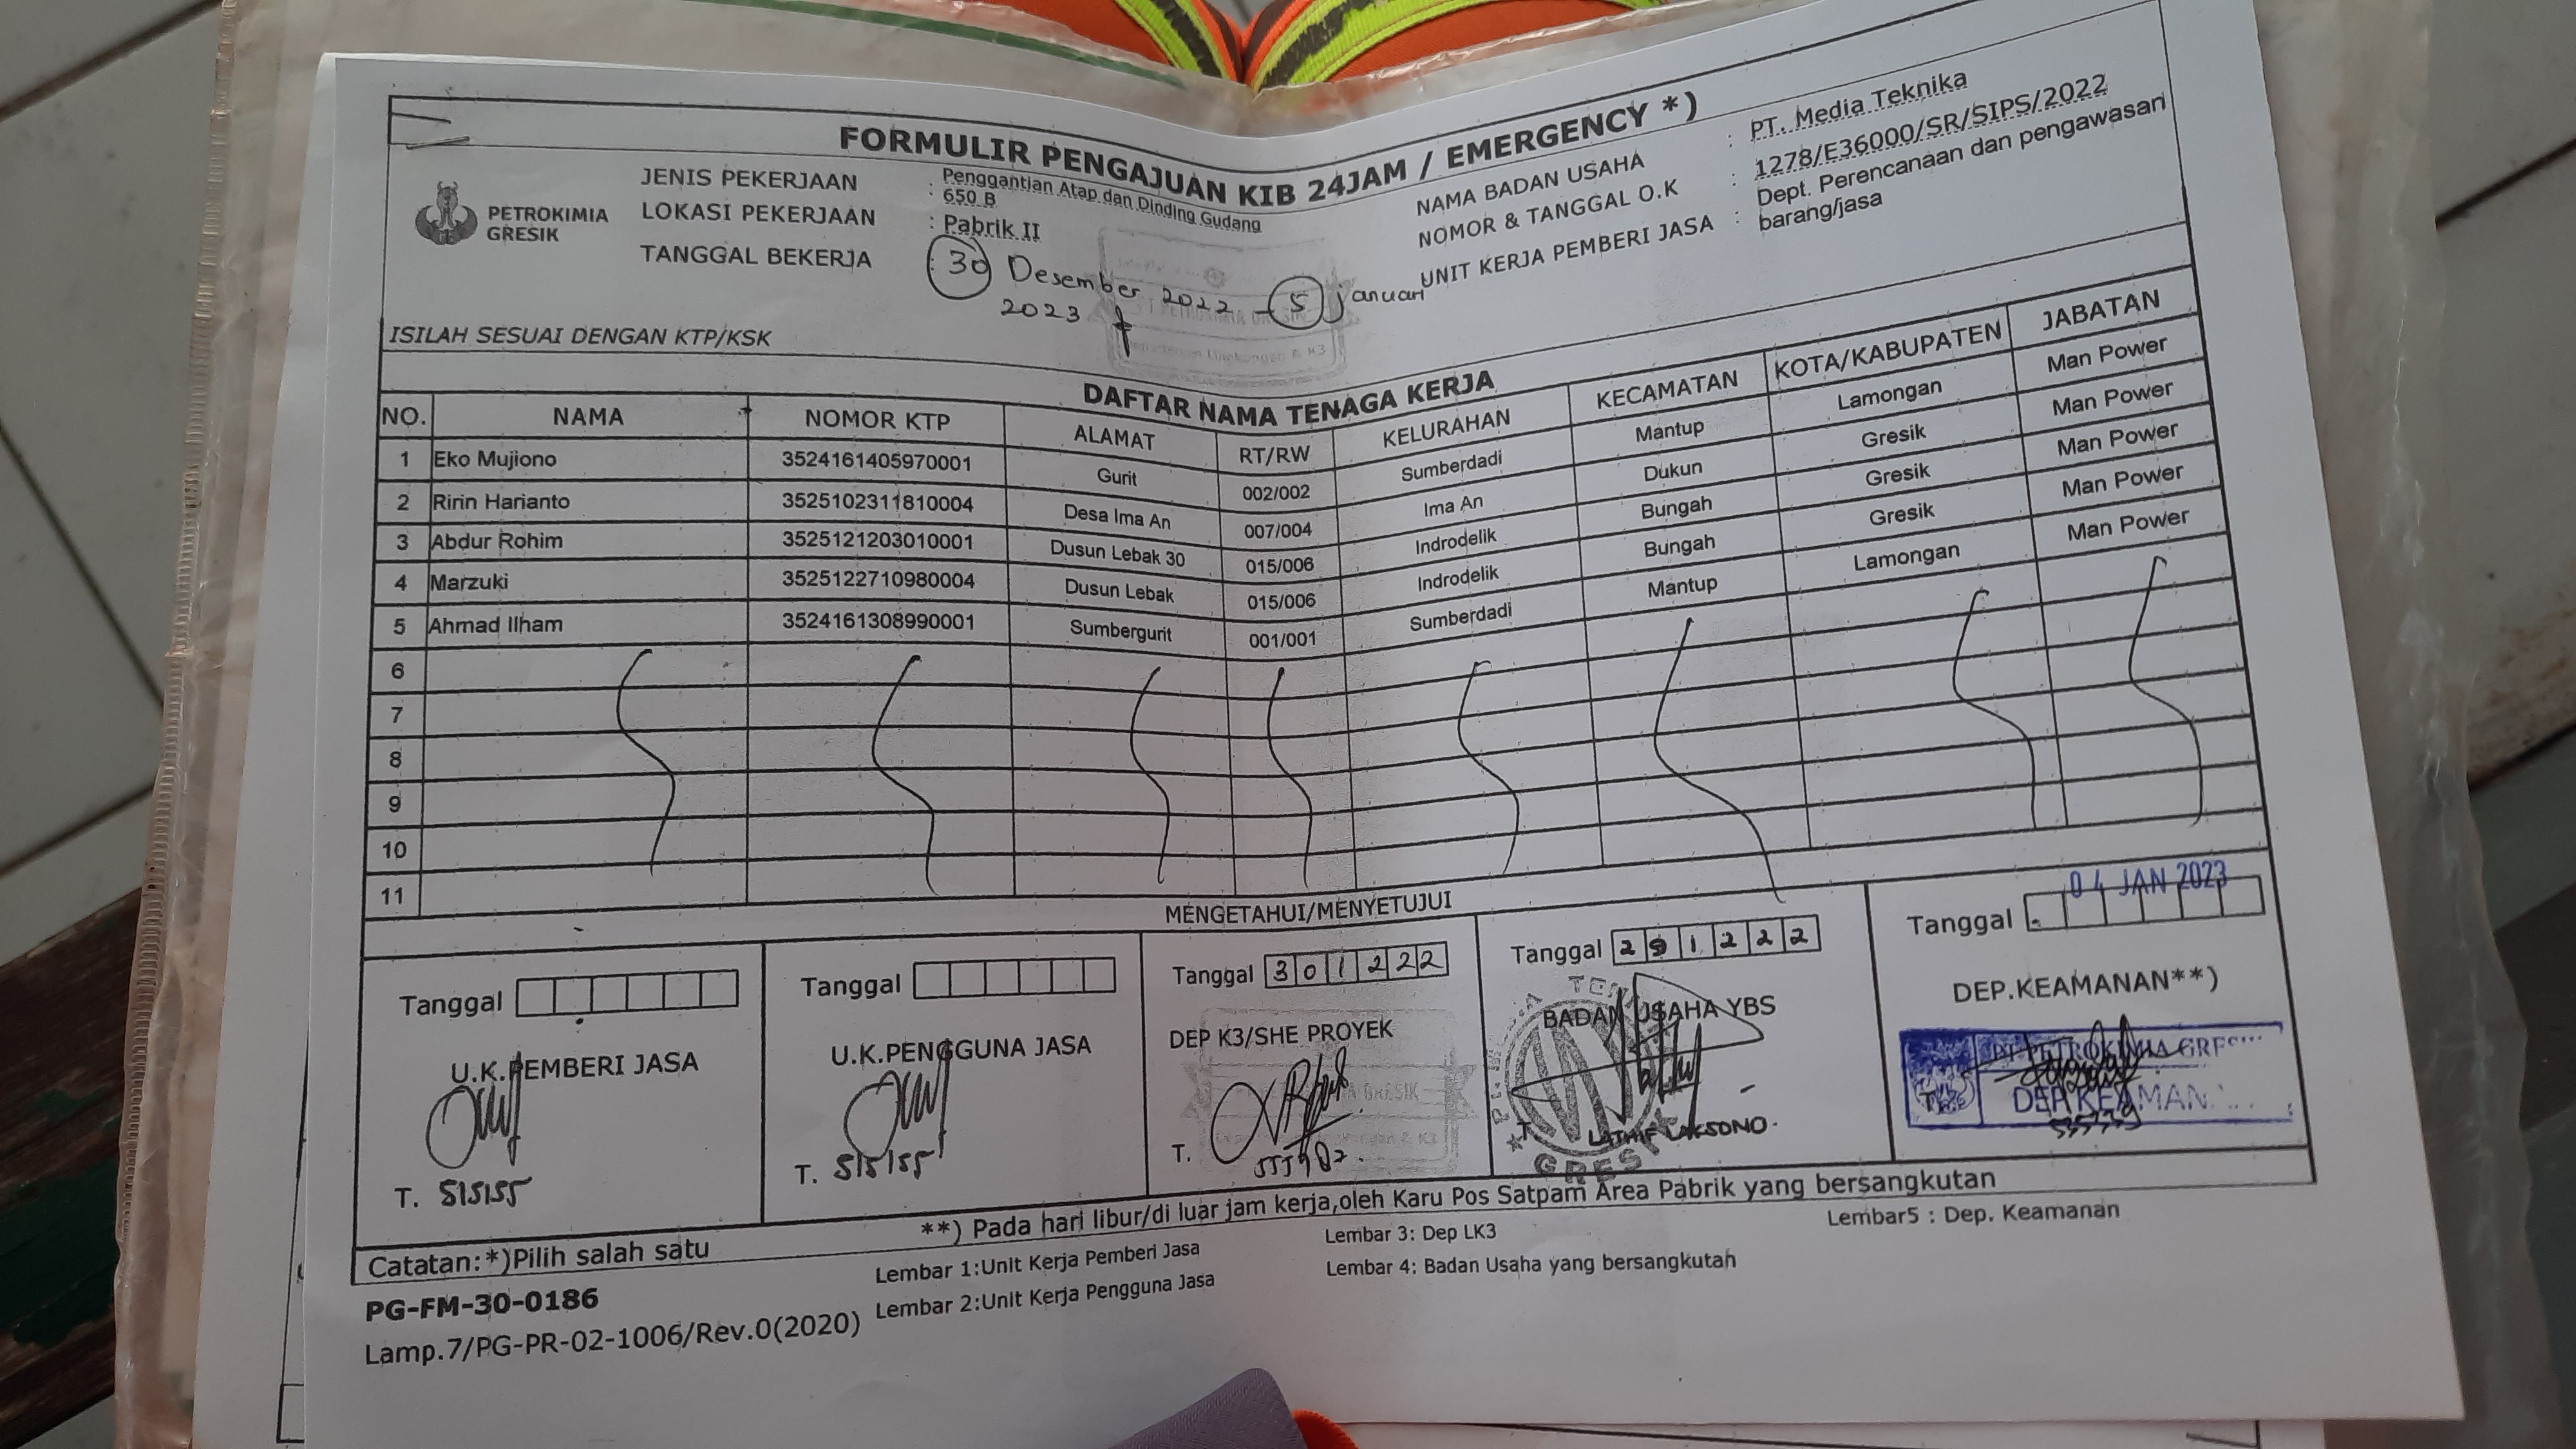 FORMULIR PENGAJUAN KIB 24JAM / EMERGENCY *)
PETROKIMIA
GRESIK
JENIS PEKERJAAN : Penggantian Atap dan Dinding Gudang
650 B
LOKASI PEKERJAAN : Pabrik II
TANGGAL BEKERJA : 30 Desember 2022 - 5 Januari
2023
NAMA BADAN USAHA : PT. Media Teknika
NOMOR & TANGGAL O.K : 1278/E36000/SR/SIPS/2022
UNIT KERJA PEMBERI JASA : Dept. Perencanaan dan pengawasan
barang/jasa
ISILAH SESUAI DENGAN KTP/KSK
DAFTAR NAMA TENAGA KERJA
NO. NAMA NOMOR KTP ALAMAT RT/RW KELURAHAN KECAMATAN KOTA/KABUPATEN JABATAN
1 Eko Mujiono 3524161405970001 Gurit 002/002 Sumberdadi Mantup Lamongan Man Power
2 Ririn Harianto 3525102311810004 Desa Ima An 007/004 Ima An Dukun Gresik Man Power
3 Abdur Rohim 3525121203010001 Dusun Lebak 30 015/006 Indrodelik Bungah Gresik Man Power
4 Marzuki 3525122710980004 Dusun Lebak 015/006 Indrodelik Bungah Gresik Man Power
5 Ahmad Ilham 3524161308990001 Sumbergurit 001/001 Sumberdadi Mantup Lamongan Man Power
6
7
8
9
10
11
MENGETAHUI/MENYETUJUI
Tanggal
U.K.PEMBERI JASA
T.
Tanggal
U.K.PENGGUNA JASA
T.
Tanggal 301222
DEP K3/SHE PROYEK
T.
Tanggal 291222
BADAN USAHA YBS
Tanggal 04 JAN 2023
DEP.KEAMANAN**)
Catatan:*)Pilih salah satu
**) Pada hari libur/di luar jam kerja,oleh Karu Pos Satpam Area Pabrik yang bersangkutan
PG-FM-30-0186
Lamp.7/PG-PR-02-1006/Rev.0(2020)
Lembar 1:Unit Kerja Pemberi Jasa
Lembar 2:Unit Kerja Pengguna Jasa
Lembar 3: Dep LK3
Lembar 4: Badan Usaha yang bersangkutah
Lembar5 : Dep. Keamanan